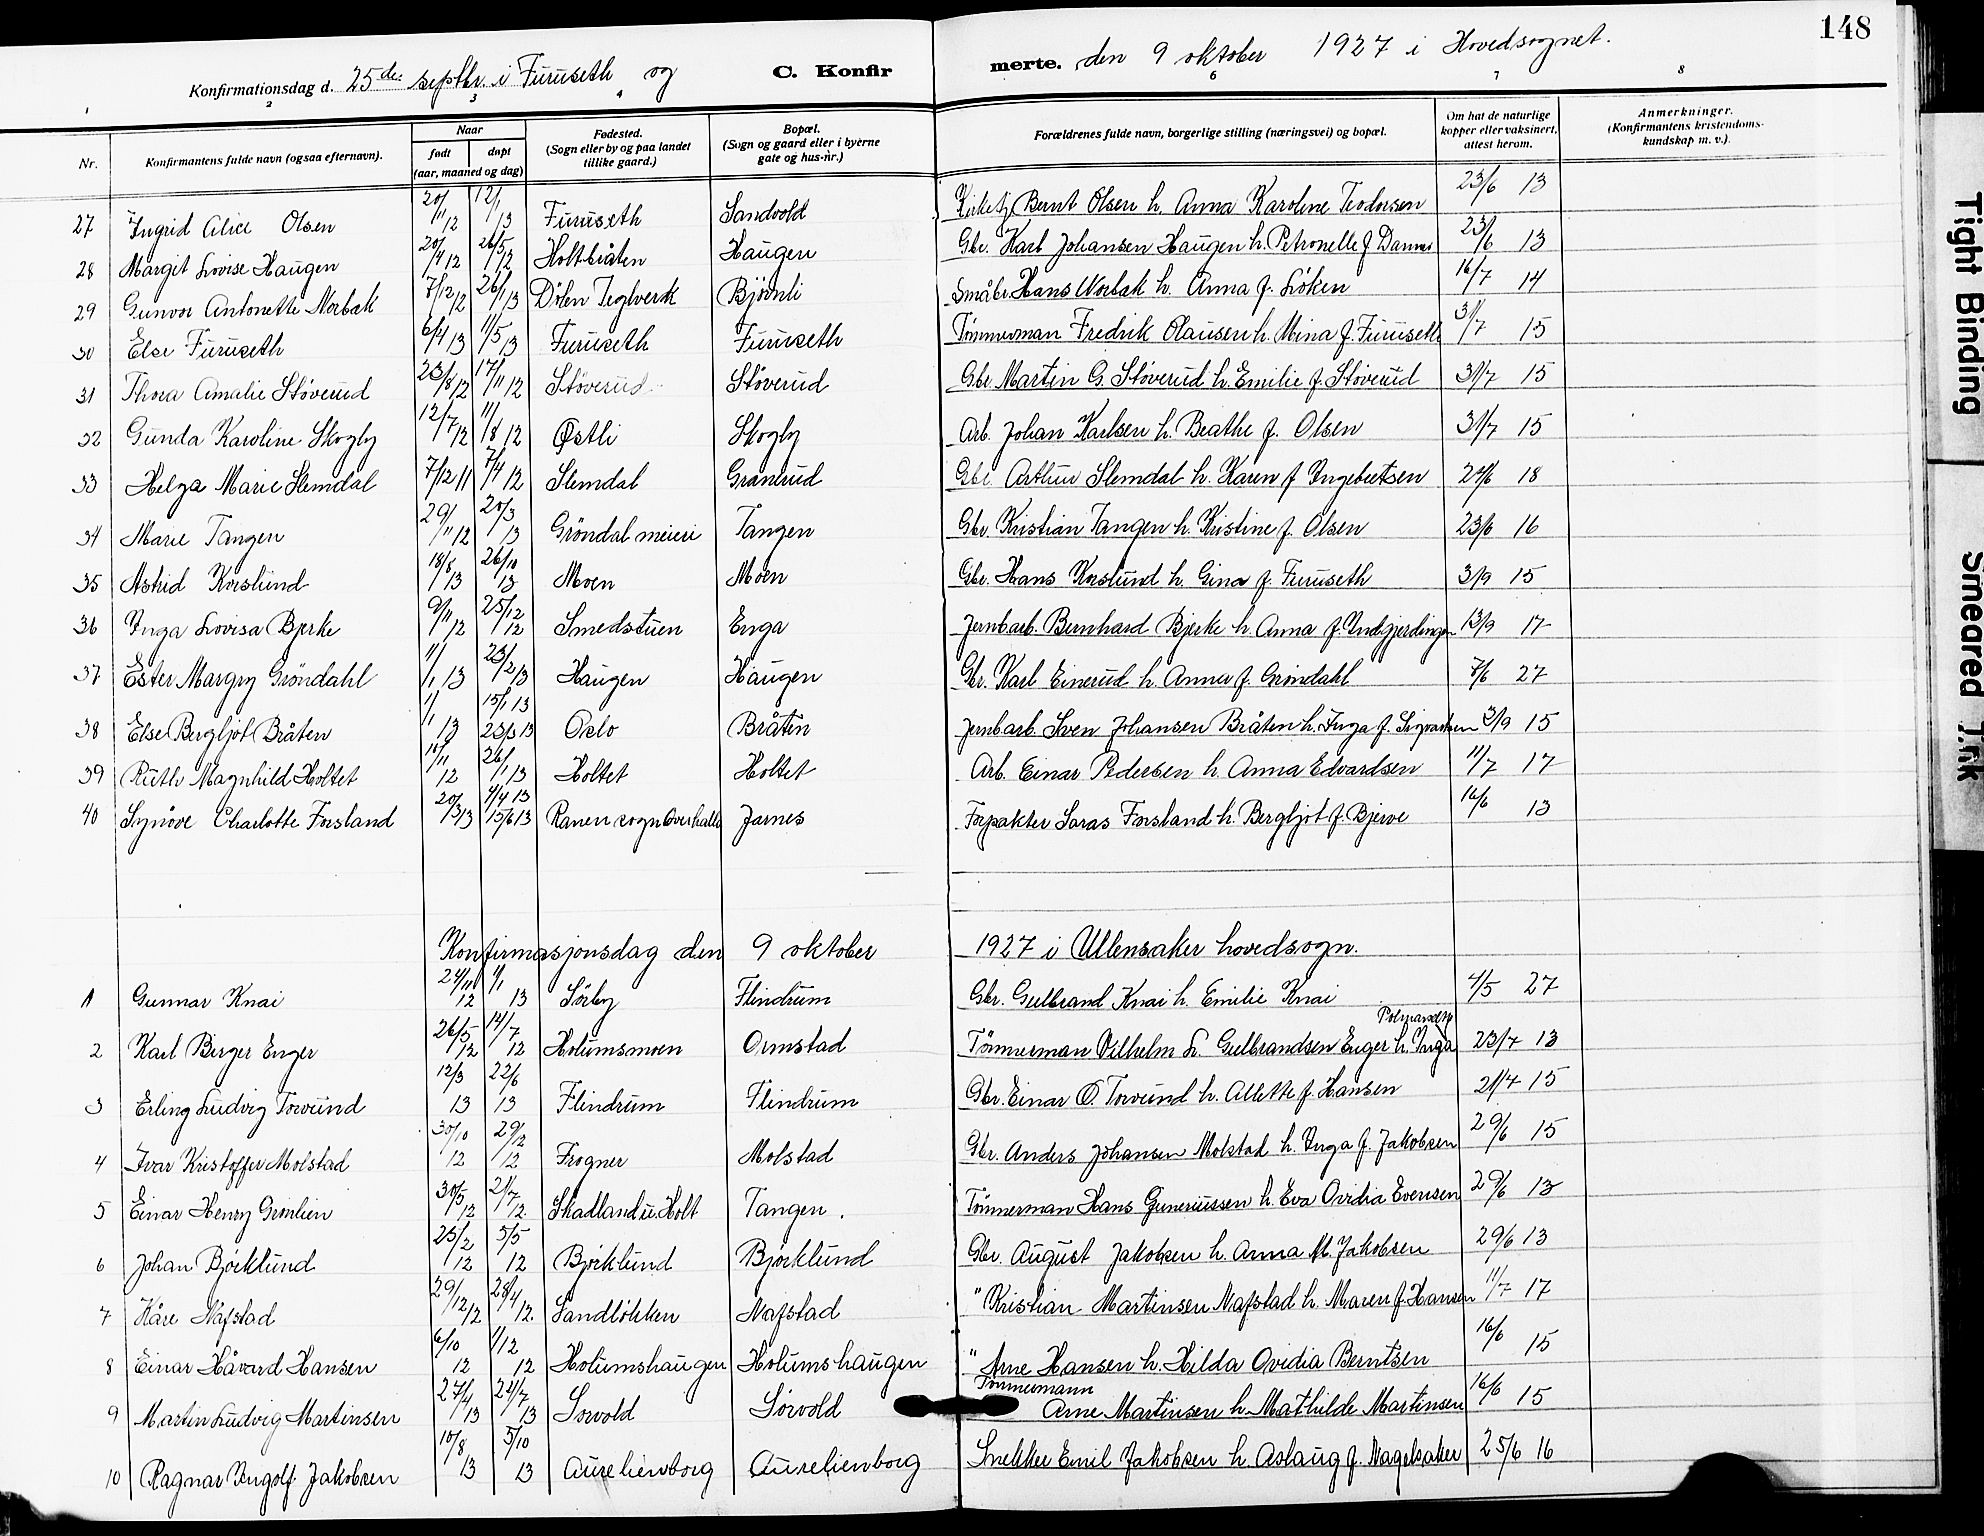 148
Konfirmationsdag d. 25de septbr. i Furuseth og C. Konfirmerte. den 9 oktober 1927 i Hovedsognet.
1 2 3 4 6 7 8
Nr. Konfirmantens fulde navn (ogsaa efternavn). Naar født døpt (aar, maaned og dag) Fødested. (Sogn eller by og paa landet tillike gaard.) Bopæl. (Sogn og gaard eller i byerne gate og hus-nr.) Forældrenes fulde navn, borgerlige stilling (næringsvei) og bopæl. Om hat de naturlige kopper eller vaksinert, attest herom. Anmerkninger. (Konfirmantens kristendoms-kundskap m. v.).
27 Ingrid Alice Olsen 20/11 12 12/1 13 Furuseth Sandvold Kirketj. Bernt Olsen h. Anna Karoline Teodorsen 23/6 13
28 Margit Lovise Haugen 20/4 12 26/5 12 Holtbråten Haugen Gbr. Karl Johansen Haugen h. Petronelle f. 23/6 13
29 Gunvor Antonette Norbak 7/12 12 26/1 13 Dølen Teglverk Bjørnli Småbr. Hans Norbak h. Anna f. Løken 16/7 14
30 Else Furuseth 6/4 13 11/5 13 Furuseth Furuseth Tømmerman Fredrik Olausen h. Mina f. Furuseth 31/7 15
31 Thora Amalie Støverud 23/8 12 17/11 12 Støverud Støverud Gbr. Martin G. Støverud h. Emilie f. Støverud 31/7 15
32 Gunda Karoline Skogly 12/7 12 11/8 12 Østli Skogly Arb. Johan Karlsen h. Beathe f. Olsen 31/7 15
33 Helga Marie Slemdal 7/12 11 7/4 12 Slemdal Granerud Gbr. Arthur Slemdal h. Karen f Ingebretsen 24/6 18
34 Marie Tangen 29/11 12 20/3 13 Grøndal meieri Tangen Gbr. Kristian Tangen h. Kristine f. Olsen 23/6 16
35 Astrid Korslund 18/8 13 26/10 13 Moen Moen Gbr. Hans Korslund h. Gina f. Furuseth 3/9 15
36 Inga Lovisa Bjerke 9/11 12 25/12 12 Smedstuen Enga Jernb.arb. Bernhard Bjerke h. Anna f. Indgjerdingen 13/9 17
37 Ester Margry Grøndahl 11/1 13 23/2 13 Haugen Haugen Gbr. Karl Einerud h. Anna f. Grøndahl 7/6 27
38 Else Bergljot Bråten 1/1 13 15/1 13 23/3 13 Oslo Bråten Jernb.arb. Sven Johansen Bråten h. Inga f. 3/9 15
39 Ruth Magnhild Holtet 10/11 12 26/1 13 Holtet Holtet Arb. Einar Pedersen h. Anna Edvardsen 11/7 17
40 Synøve Charlotte Forsland 20/3 13 4/4 13 15/6 13 Ranen sogn Overhalla Jarnes Forpakter Saras Forsland h. Bergljot f. Bjerve 16/6 13
Konfirmasjonsdag den 9 oktober 1927 i Ullensaker hovedsogn.
1 Gunnar Knai 24/11 12 1/1 13 Sørby Flindrum Gbr. Gulbrand Knai h. Emilie Knai 4/5 27
2 Karl Birger Enger 26/5 12 14/7 12 Holumsmoen Ormstad Tømmerman Vilhelm L. Gulbrandsen Enger h. Inga 23/7 13
3 Erling Ludvig Torvund 12/3 13 22/6 13 Flindrum Flindrum Gbr. Einar O. Torvund h. Allette f. Hansen 21/7 15
4 Ivar Kristoffer Molstad 30/10 12 29/2 12 Frogner Molstad Gbr. Anders Johansen Molstad h. Inga f. Jakobsen 29/6 15
5 Einar Henry Grønlien 30/5 12 21/7 12 Skadland u. Holt Tangen. Tømmerman Hans Guneriussen h. Eva Ovidia Evensen 29/6 13
6 Johan Bjørklund 25/2 12 5/5 12 Bjørklund Bjørklund Gbr. August Jakobsen h. Anna M. Jakobsen 29/6 13
7 Kåre Nafstad 29/12 12 28/4 12. Sandløkken Nafstad " Kristian Martinsen Nafstad h. Maren f. Hansen 11/7 17
8 Einar Håvard Hansen 6/10 12 1/12 12 Holumshaugen Holumshaugen " Arne Hansen h. Hilda Ovidia Berntsen 16/6 15
9 Martin Ludvig Martinsen 27/4 13 27/7 13 Sørvold Sørvold Tømmermann Arne Martinsen h. Mathilde Martinsen 16/6 15
10 Ragnar Ingolf Jakobsen 10/8 13 5/10 13 Aurelienborg Aurelienborg Snekker Emil Jakobsen h. Aslaug f. Nagelsaker 25/6 16
Tight Binding
Smeared Ink